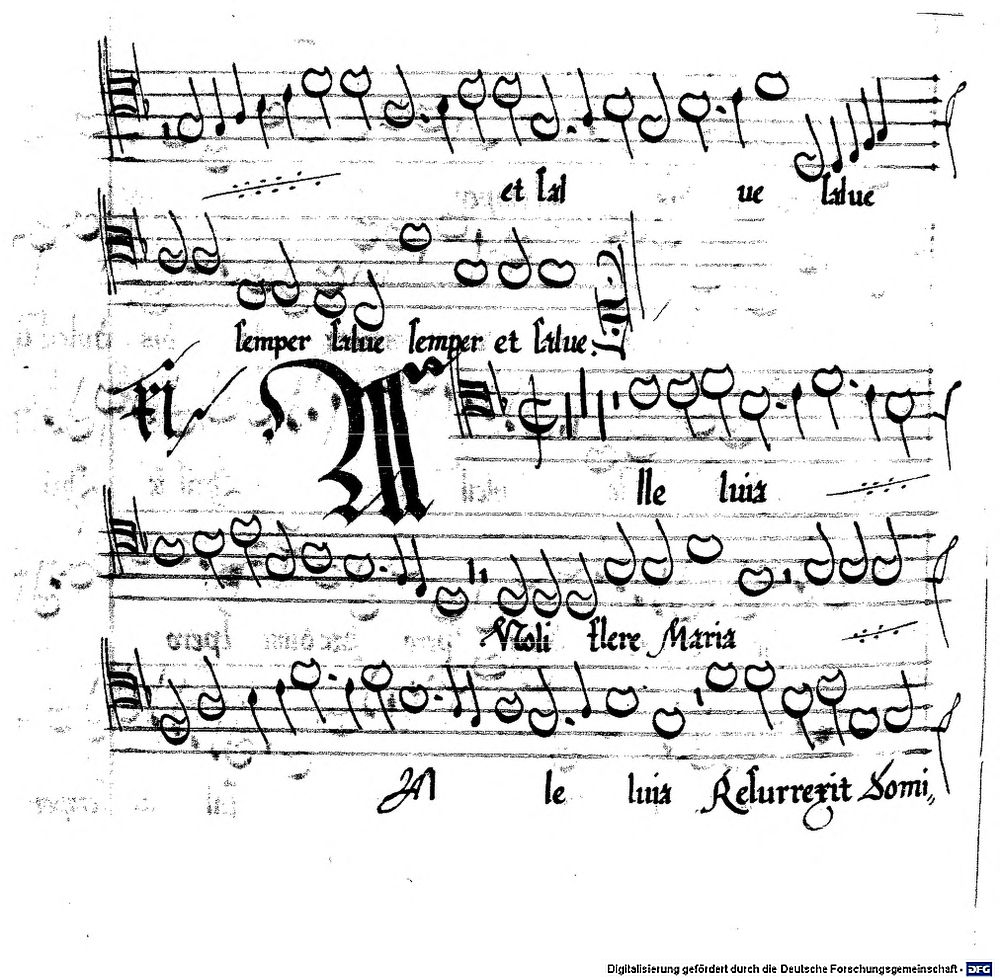 et sal ue salue
semper salue semper et salue.
xi Alle luia
Noli flere Maria
Al le luia Resurrexit Domi„
Digitalisierung gefördert durch die Deutsche Forschungsgemeinschaft - DFG